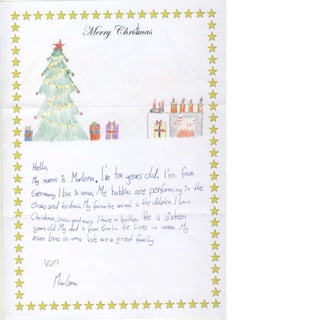 Merry Christmas
Hello,
My name is Marlena. I'm ten years old. I'm from
Germany I live in My hobbies are performing in the
Circus and to draw. My favorite animal is the dolphin. I love
Christmas, snow and I have a brother He is sixteen
years old My dad is from He Lives in My
mom Lives in We are a great family.
von
Marlena